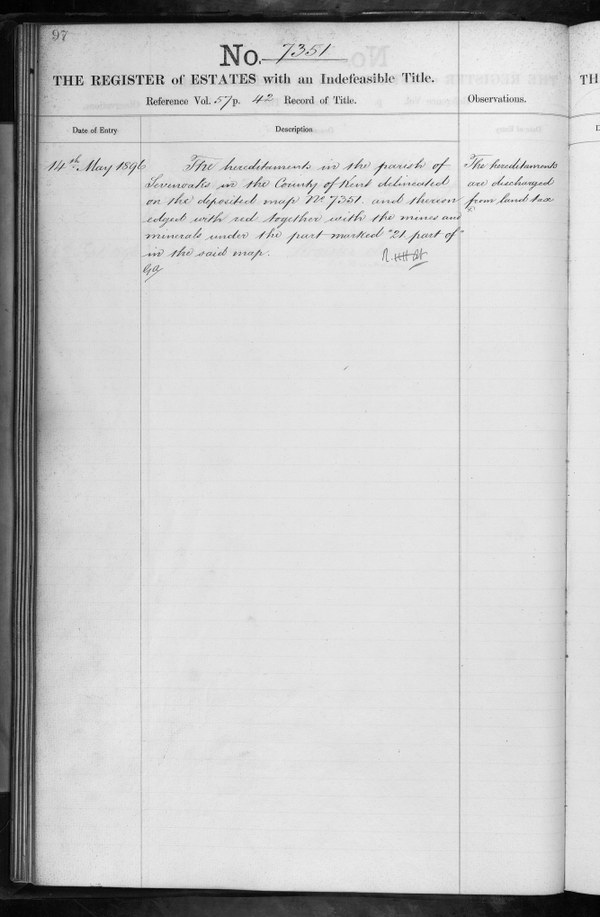 97
No. 7351
THE REGISTER of ESTATES with an Indefeasible Title.
Reference Vol. 57 p. 42 Record of Title.
Observations.
TH
Date of Entry
Description
D
14th May 1896
The hereditaments in the parish of
Sevenoaks in the County of Kent delineated
on the deposited map No 7351 and thereon
edged with red together with the mines and
minerals under the part marked "21 part of"
in the said map.
The hereditaments
are discharged
from land tax